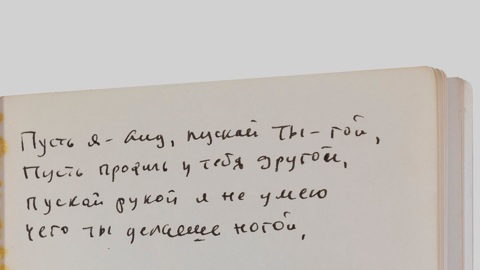 Пусть я - аид, пускай ты - гой,
Пусть профиль у тебя другой,
Пускай рукой я не умею
Чего ты делаеше ногой,